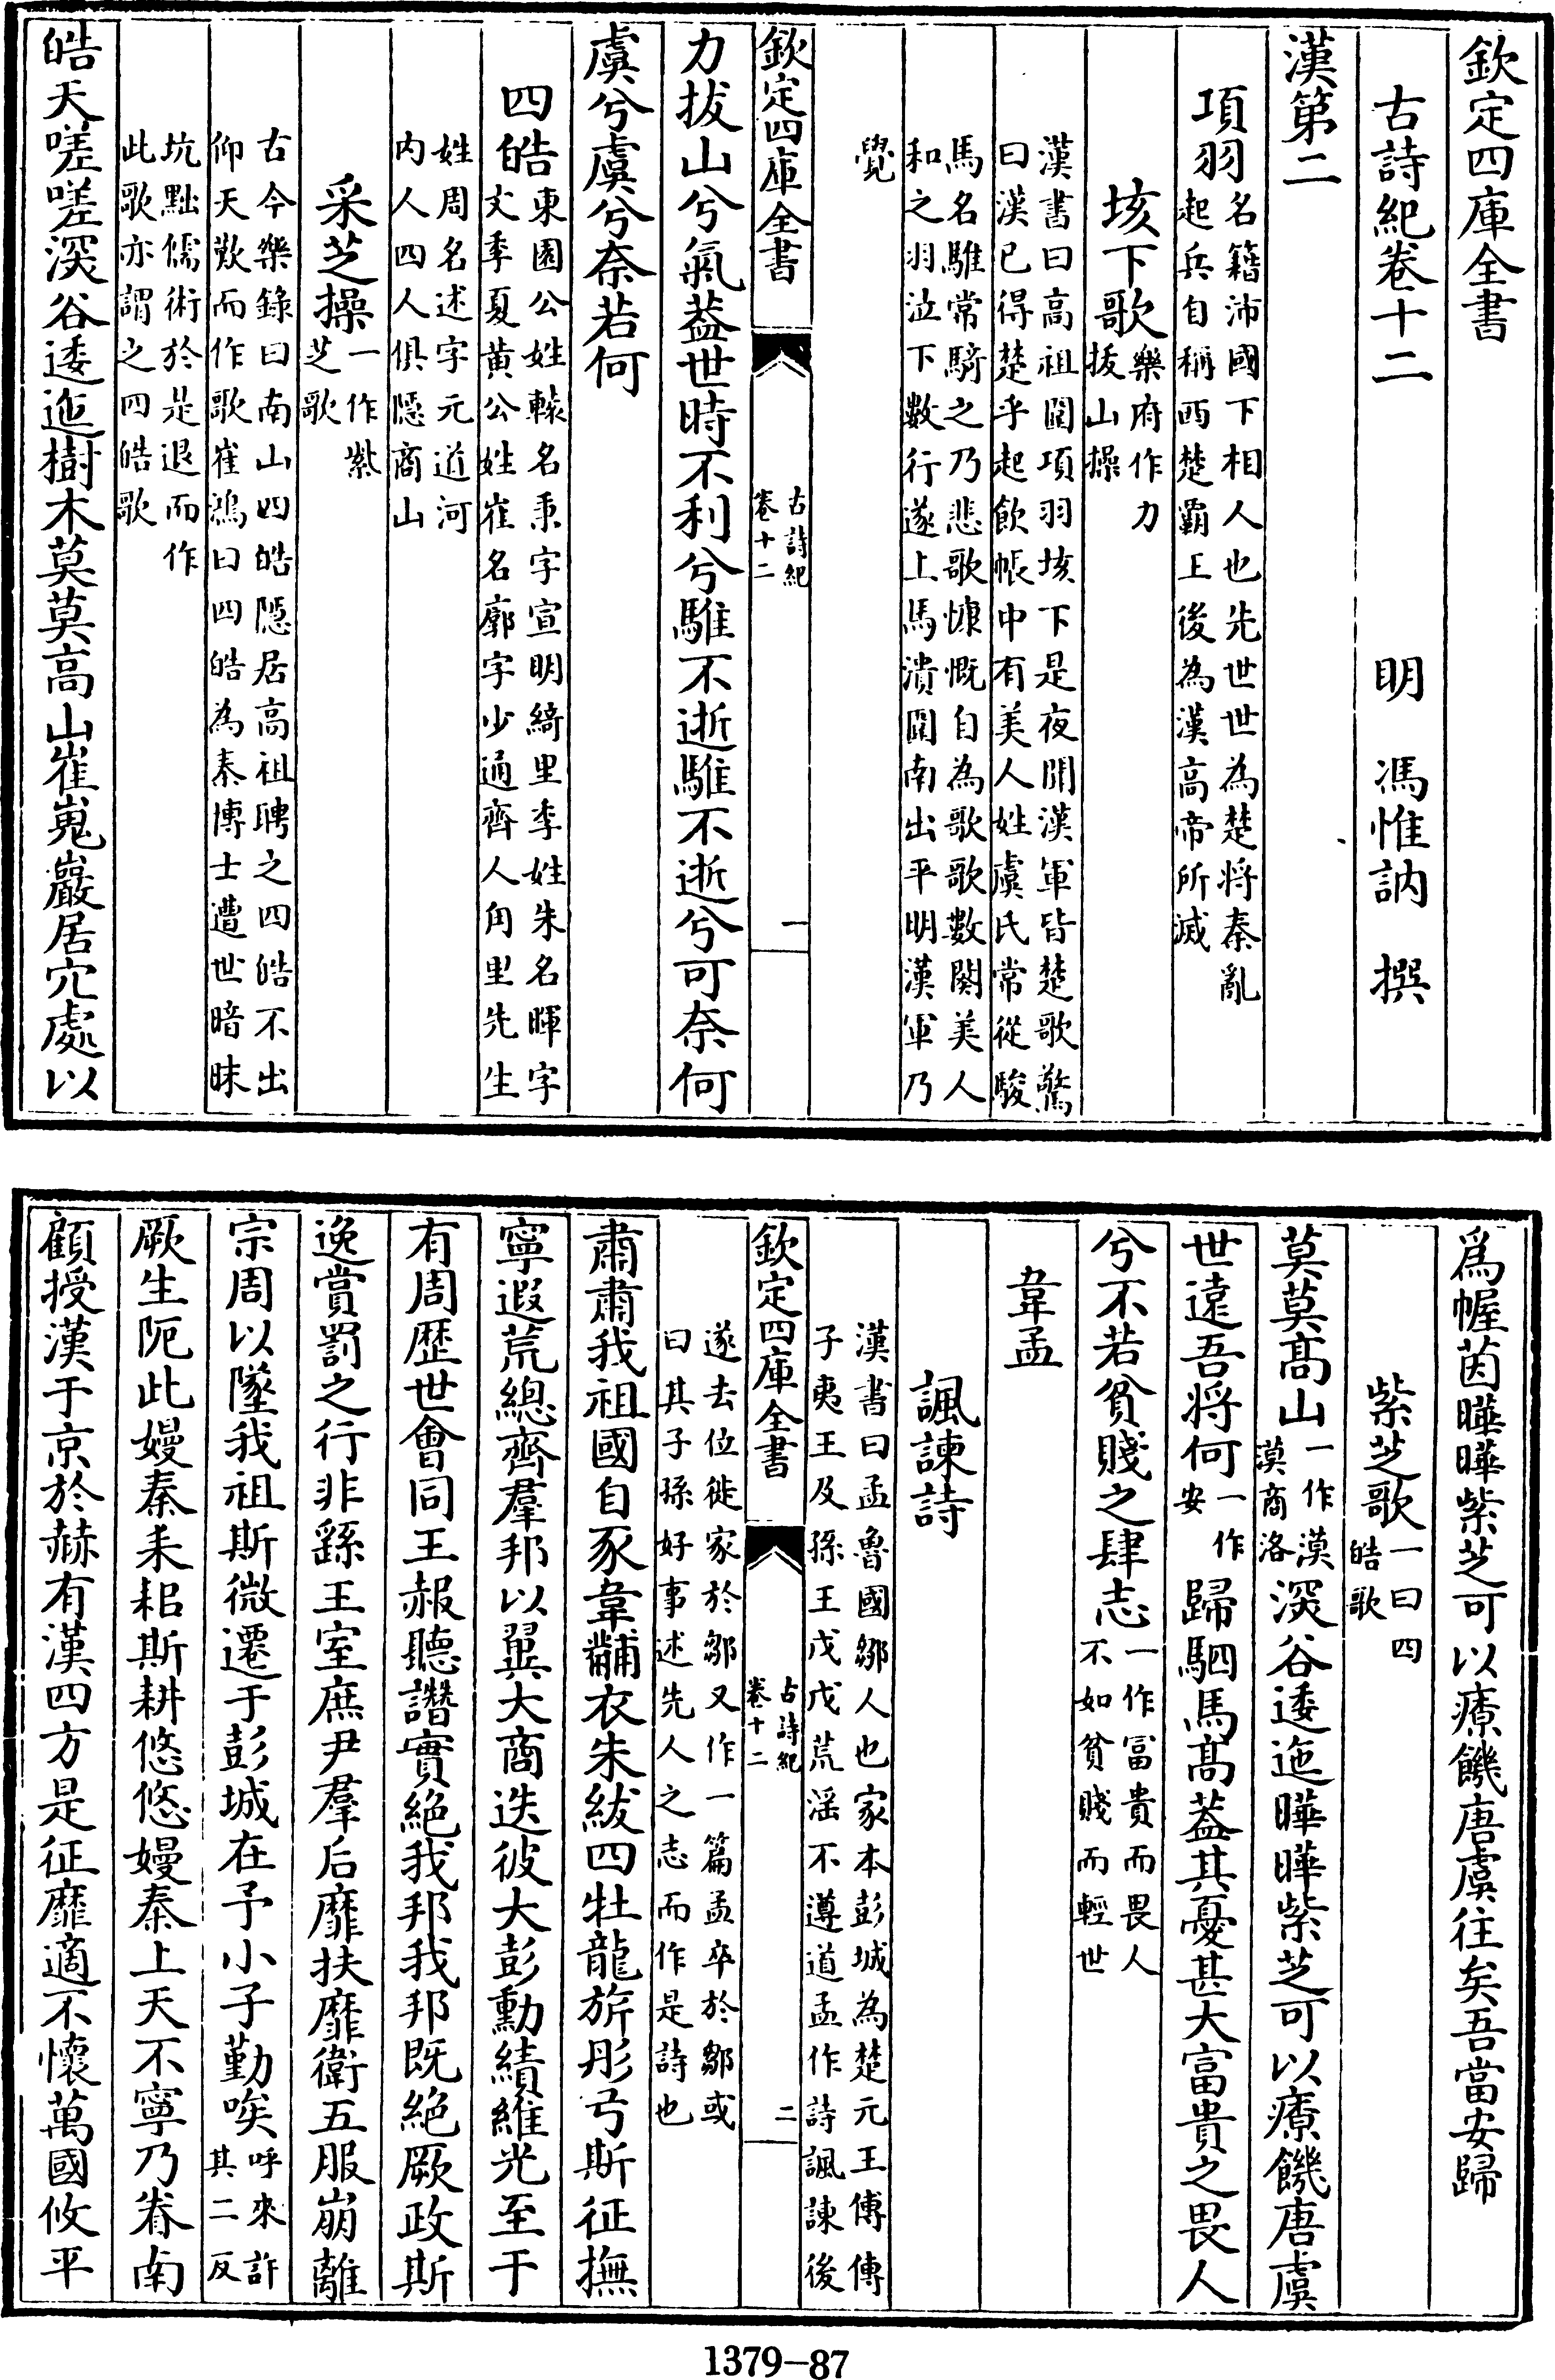 欽定四庫全書
古詩紀卷十二
明 馮惟訥 撰
漢第二
項羽
名籍沛國下相人也先世世為楚將秦亂
起兵自稱西楚霸王後為漢高帝所滅
垓下歌
樂府作力
拔山操
漢書曰高祖圍項羽垓下是夜聞漢軍皆楚歌驚
曰漢已得楚乎起飲帳中有美人姓虞氏常從駿
馬名騅常騎之乃悲歌慷慨自為歌歌數闋美人
和之羽泣下數行遂上馬潰圍南出平明漢軍乃
覺
欽定四庫全書
古詩紀
卷十二
一
力拔山兮氣葢世時不利兮騅不逝騅不逝兮可奈何
虞兮虞兮奈若何
四皓
東園公姓轅名秉字宣明綺里季姓朱名暉字
文季夏黄公姓崔名廓字少通齊人角里先生
姓周名述字元道河
内人四人俱隱商山
采芝操
一作紫
芝歌
古今樂錄曰南山四皓隱居高祖聘之四皓不出
仰天歎而作歌崔鴻曰四皓為秦博士遭世暗昧
坑黜儒術於是退而作
此歌亦謂之四皓歌
皓天嗟嗟深谷逶迤樹木莫莫高山崔嵬巖居穴處以
爲幄茵曄曄紫芝可以療饑唐虞往矣吾當安歸
紫芝歌
一曰四
皓歌
莫莫髙山
一作漠
漠商洛
深谷逶迤曄曄紫芝可以療饑唐虞
世遠吾將何
一作
安
歸駟馬髙葢其憂甚大富貴之畏人
兮不若貧賤之肆志
一作富貴而畏人
不如貧賤而輕世
韋孟
諷諫詩
漢書曰孟魯國鄒人也家本彭城為楚元王傅傅
子夷王及孫王戊戊荒淫不遵道孟作詩諷諫後
欽定四庫全書
古詩紀
卷十二
二
遂去位徙家於鄒又作一篇孟卒於鄒或
曰其子孫好事述先人之志而作是詩也
肅肅我祖國自豕韋黼衣朱紱四牡龍旂彤弓斯征撫
寧遐荒總齊羣邦以翼大商迭彼大彭勳績維光至于
有周歷世會同王赧聽譖實絶我邦我邦既絶厥政斯
逸賞罰之行非繇王室庶尹羣后靡扶靡衛五服崩離
宗周以墜我祖斯微遷于彭城在予小子勤唉
呼來許
其二反
厥生阨此嫚秦耒耜斯耕悠悠嫚秦上天不寧乃眷南
顧授漢于京於赫有漢四方是征靡適不懷萬國攸平
1379-87